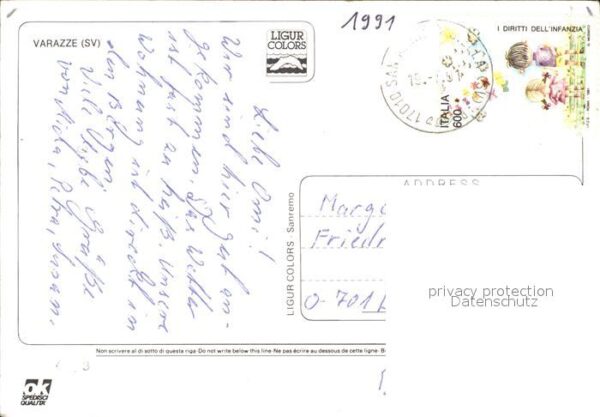 VARAZZE (SV)
LIGUR
COLORS
1991
I DIRITTI DELL'INFANZIA
ITALIA
600
17010 SAN
Liebe Omi!
Wir sind hier gut an-
gekommen. Das Wetter
ist fast zu heiß. Unsere
Wohnung ist direkt in
den Bergen.
Viele liebe Grüße
von Petra,
LIGUR COLORS Sanremo
ADDRESS
Margo
Friedr
O-701
privacy protection
Datenschutz
Non scrivere al di sotto di questa riga - Do not write below this line - Ne pas écrire au dessous de cette ligne - B
ok
SPEDISCI
QUALITÀ